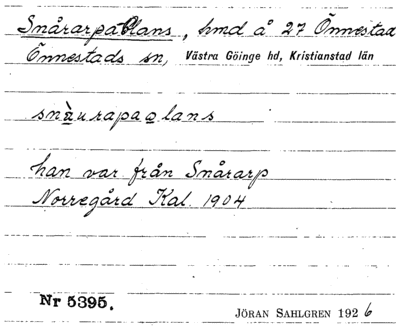 Snårarpa Olans, hmd å 27 Önnestad
Önnestads sn, Västra Göinge hd, Kristianstad län
han var från Snårarp
Norregård Kal. 1904
Nr 5395.
JÖRAN SAHLGREN 1926